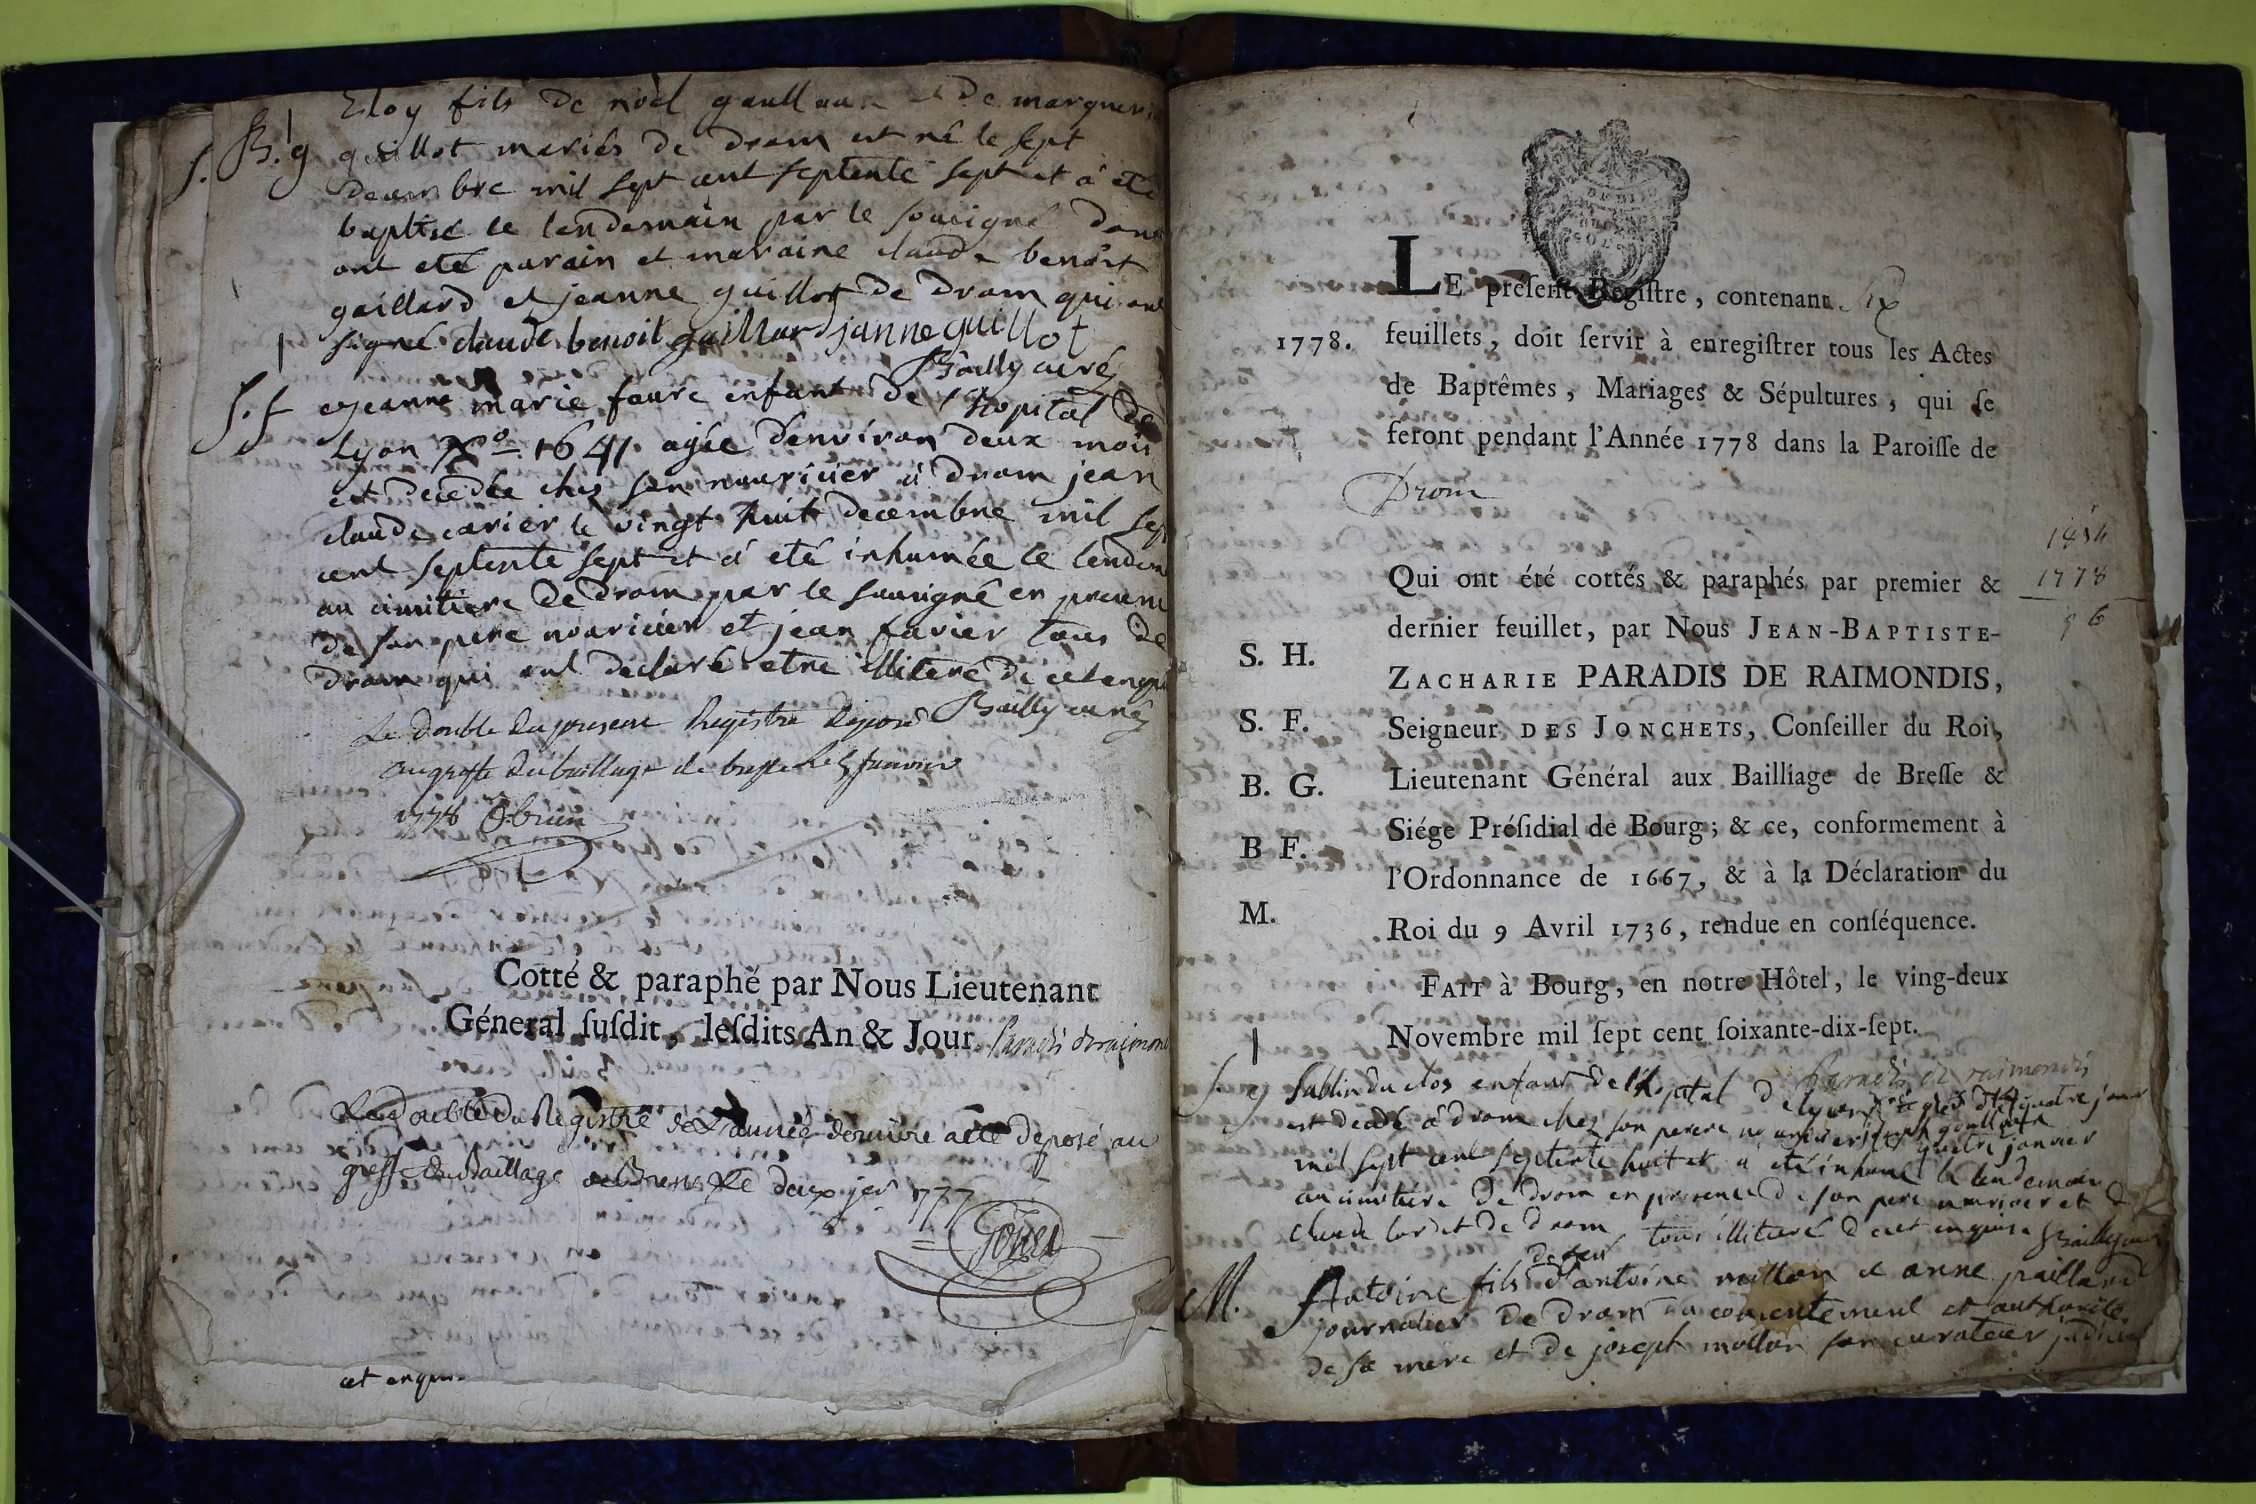 Eloy fils de noel gaull et de margueri
S. B. g guillot mariés de drom est né le sept
decembre mil sept cent septente sept et à eté
baptisé le lendemain par le souigné dont
ont eté parain et maraine claude benoit
gaillard et jeanne guillot de drom qui ont
signé claude benoit gaillard janne guillot
Bailly curé
S. f Jeanne marie faure enfant de l'hopital de
Lyon No 1641 agée d'environ deux mois
est decedée chez son nouricier à drom jean
claude carier le vingt huit decembre mil sept
cent septente sept et à eté inhumée le lendem
au cimitiere de drom par le souuigné en presen
de son pere nouricier et jean favier tous de
drom qui ont declaré etre illiteré de ce enquis
Bailly curé
Le double du present Registre deposé
au greffe du bailliage de bresse le 5 janvier
1778 Obrien
Cotté & paraphé par Nous Lieutenant
Géneral ſuſdit, leſdits An & Jour. Paradis de raimon
Le double du Registre de L'année derniere a eté deposé au
greffe du Bailliage de Bresse Le deux jer 177
et enquis
LE préſent Regiſtre, contenant Six
1778. feuillets, doit ſervir à enregiſtrer tous les Actes
de Baptêmes, Mariages & Sépultures, qui ſe
feront pendant l'Année 1778 dans la Paroiſſe de
Drom
1778
Qui ont été cottés & paraphés par premier &
dernier feuillet, par Nous JEAN-BAPTISTE-
S. H.
ZACHARIE PARADIS DE RAIMONDIS,
S. F. Seigneur DES JONCHETS, Conſeiller du Roi,
B. G. Lieutenant Général aux Bailliage de Breſſe &
Siége Préſidial de Bourg; & ce, conformement à
B F.
l'Ordonnance de 1667, & à la Déclaration du
M.
Roi du 9 Avril 1736, rendue en conſéquence.
FAIT à Bourg, en notre Hôtel, le ving-deux
Novembre mil ſept cent ſoixante-dix-ſept.
Paradis de raimondis
S. g Sablin du clos enfant de l'hopital de lyon agé de quatre jour
est decedé à drom chez son perere nouricier joseph quatre janvier
mil sept cent septente huit et a eté inhumé le lendemain
au cimitiere de drom en presence de son pere nouricier et de
claude de drom tous illiteré de cet enquis Bailly curé
defeu
M. Antoine fils d'antoine mollon et anne paillard
journalier de drom du consentement et authorité
de sa mere et de joseph mollon son curateur judici